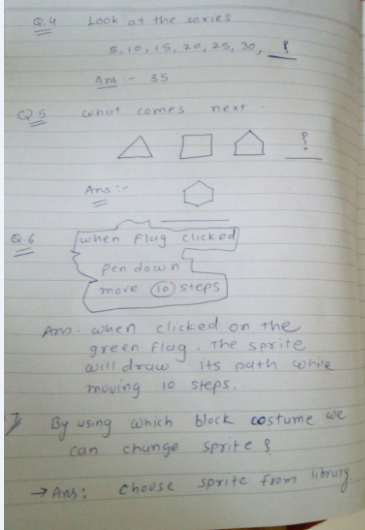 Q.4 Look at the series
5, 10, 15, 20, 25, 30, ?
Ans :- 35
Q.5 what comes next.
?
Ans :-
Q.6 when flag clicked
pen down
move 10 steps
Ans: when clicked on the
green flag. The sprite
will draw its path while
moving 10 steps.
7 By using which block costume we
can change sprite ?
→ Ans: choose sprite from library